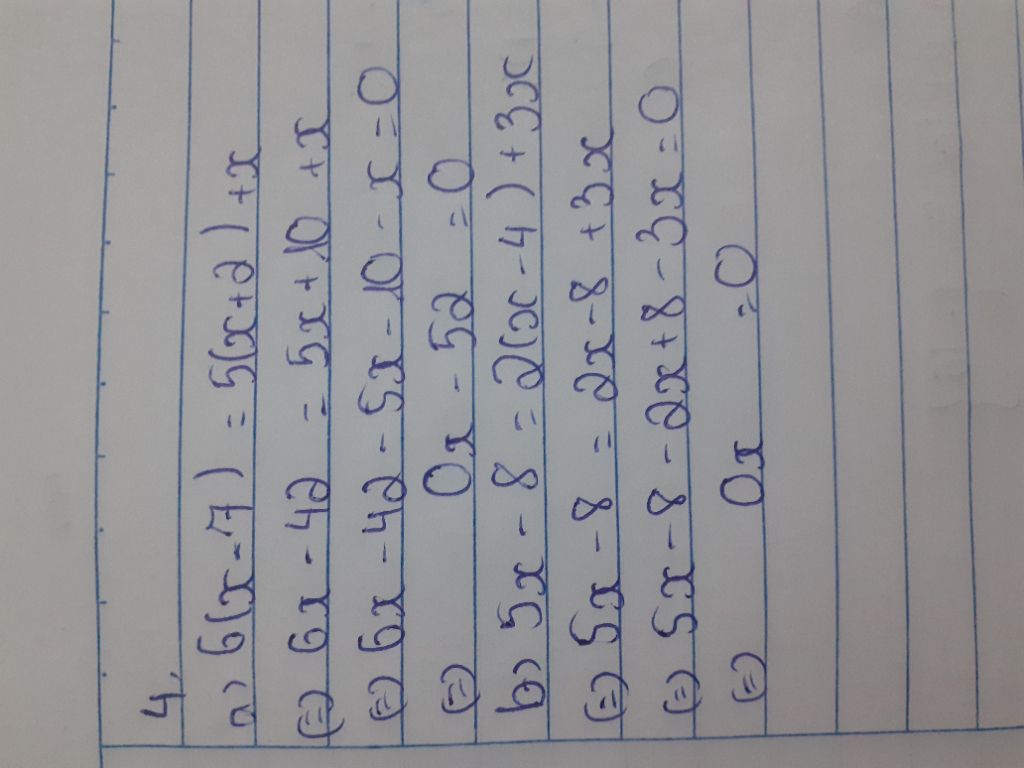 4,
a) 6(x-7) = 5(x+2) +x
(=) 6x - 42 = 5x+10 +x
(=) 6x - 42 - 5x - 10 - x = 0
(=) 0x - 52 = 0
b) 5x - 8 = 2(x-4) + 3x
(=) 5x - 8 = 2x - 8 + 3x
(=) 5x - 8 - 2x + 8 - 3x = 0
(=) 0x = 0